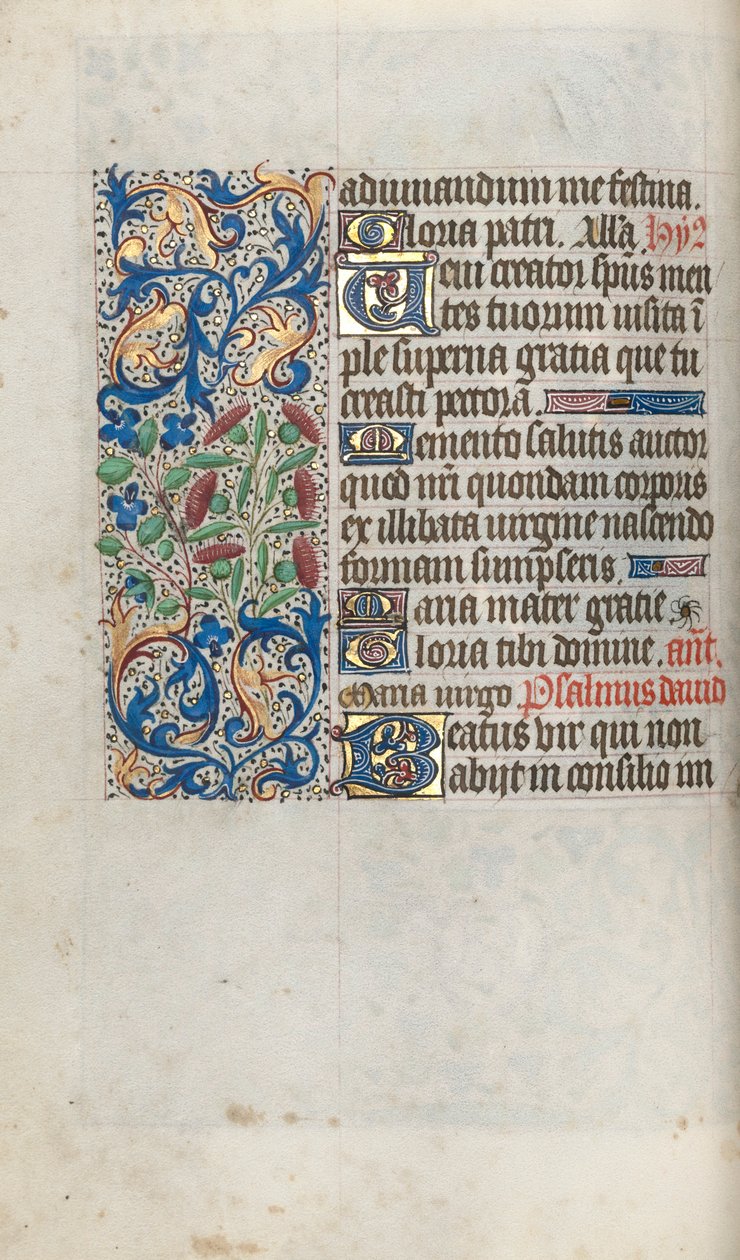 adiuuandum me festina.
Gloria patri. All'a. Hy2
Ueni creator sp̃us men
tes tuorum uisita ĩ
ple superna gratia que tu
creasti pectora.
Memento salutis auctor
quod nr̃i quondam corporis
ex illibata uirgine nascendo
formam sumpseris.
Maria mater gratie
Gloria tibi domine. añt.
Maria uirgo Psalmus dauid
Beatus vir qui non
abijt in consilio im